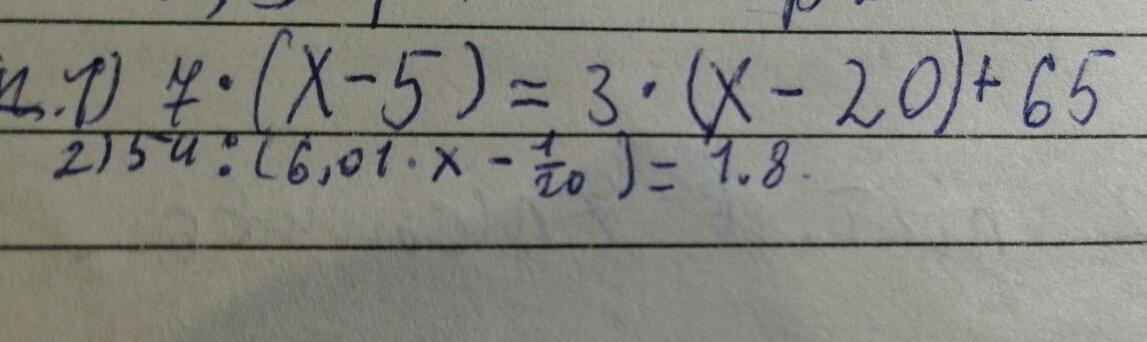 1) 7 · (x - 5) = 3 · (x - 20) + 65
2) 54 : (6,01 · x - 1/20) = 1.8.